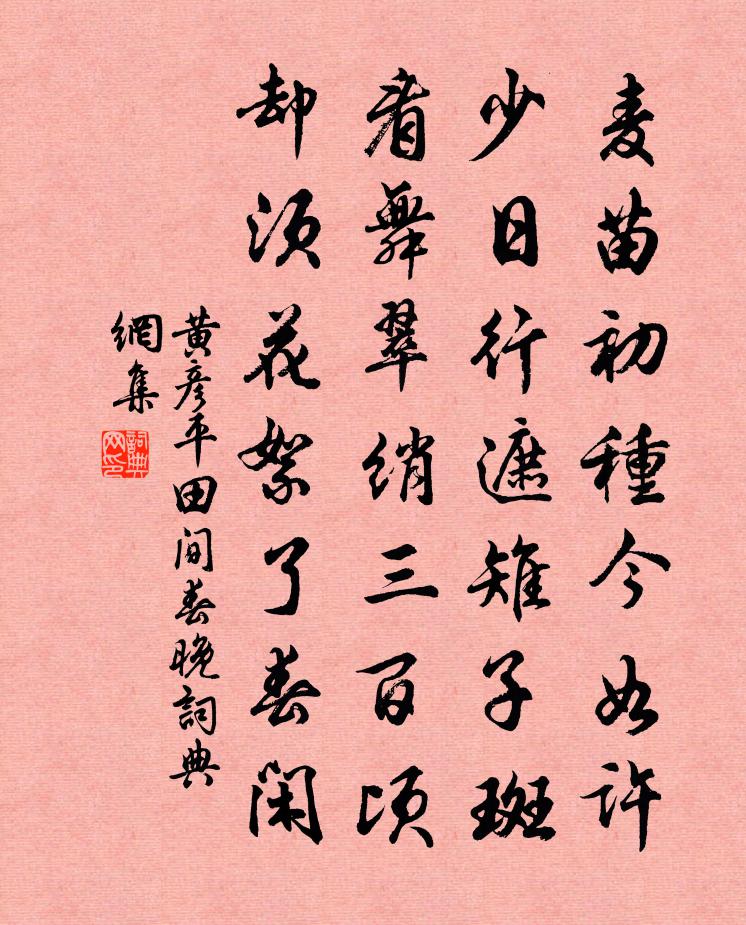 麦苗初種今如許
少日行遮雉子斑
看舞翠綃三百頃
却須花絮了春閑
黄彦平田间春晚詞典
網集
詞典網印